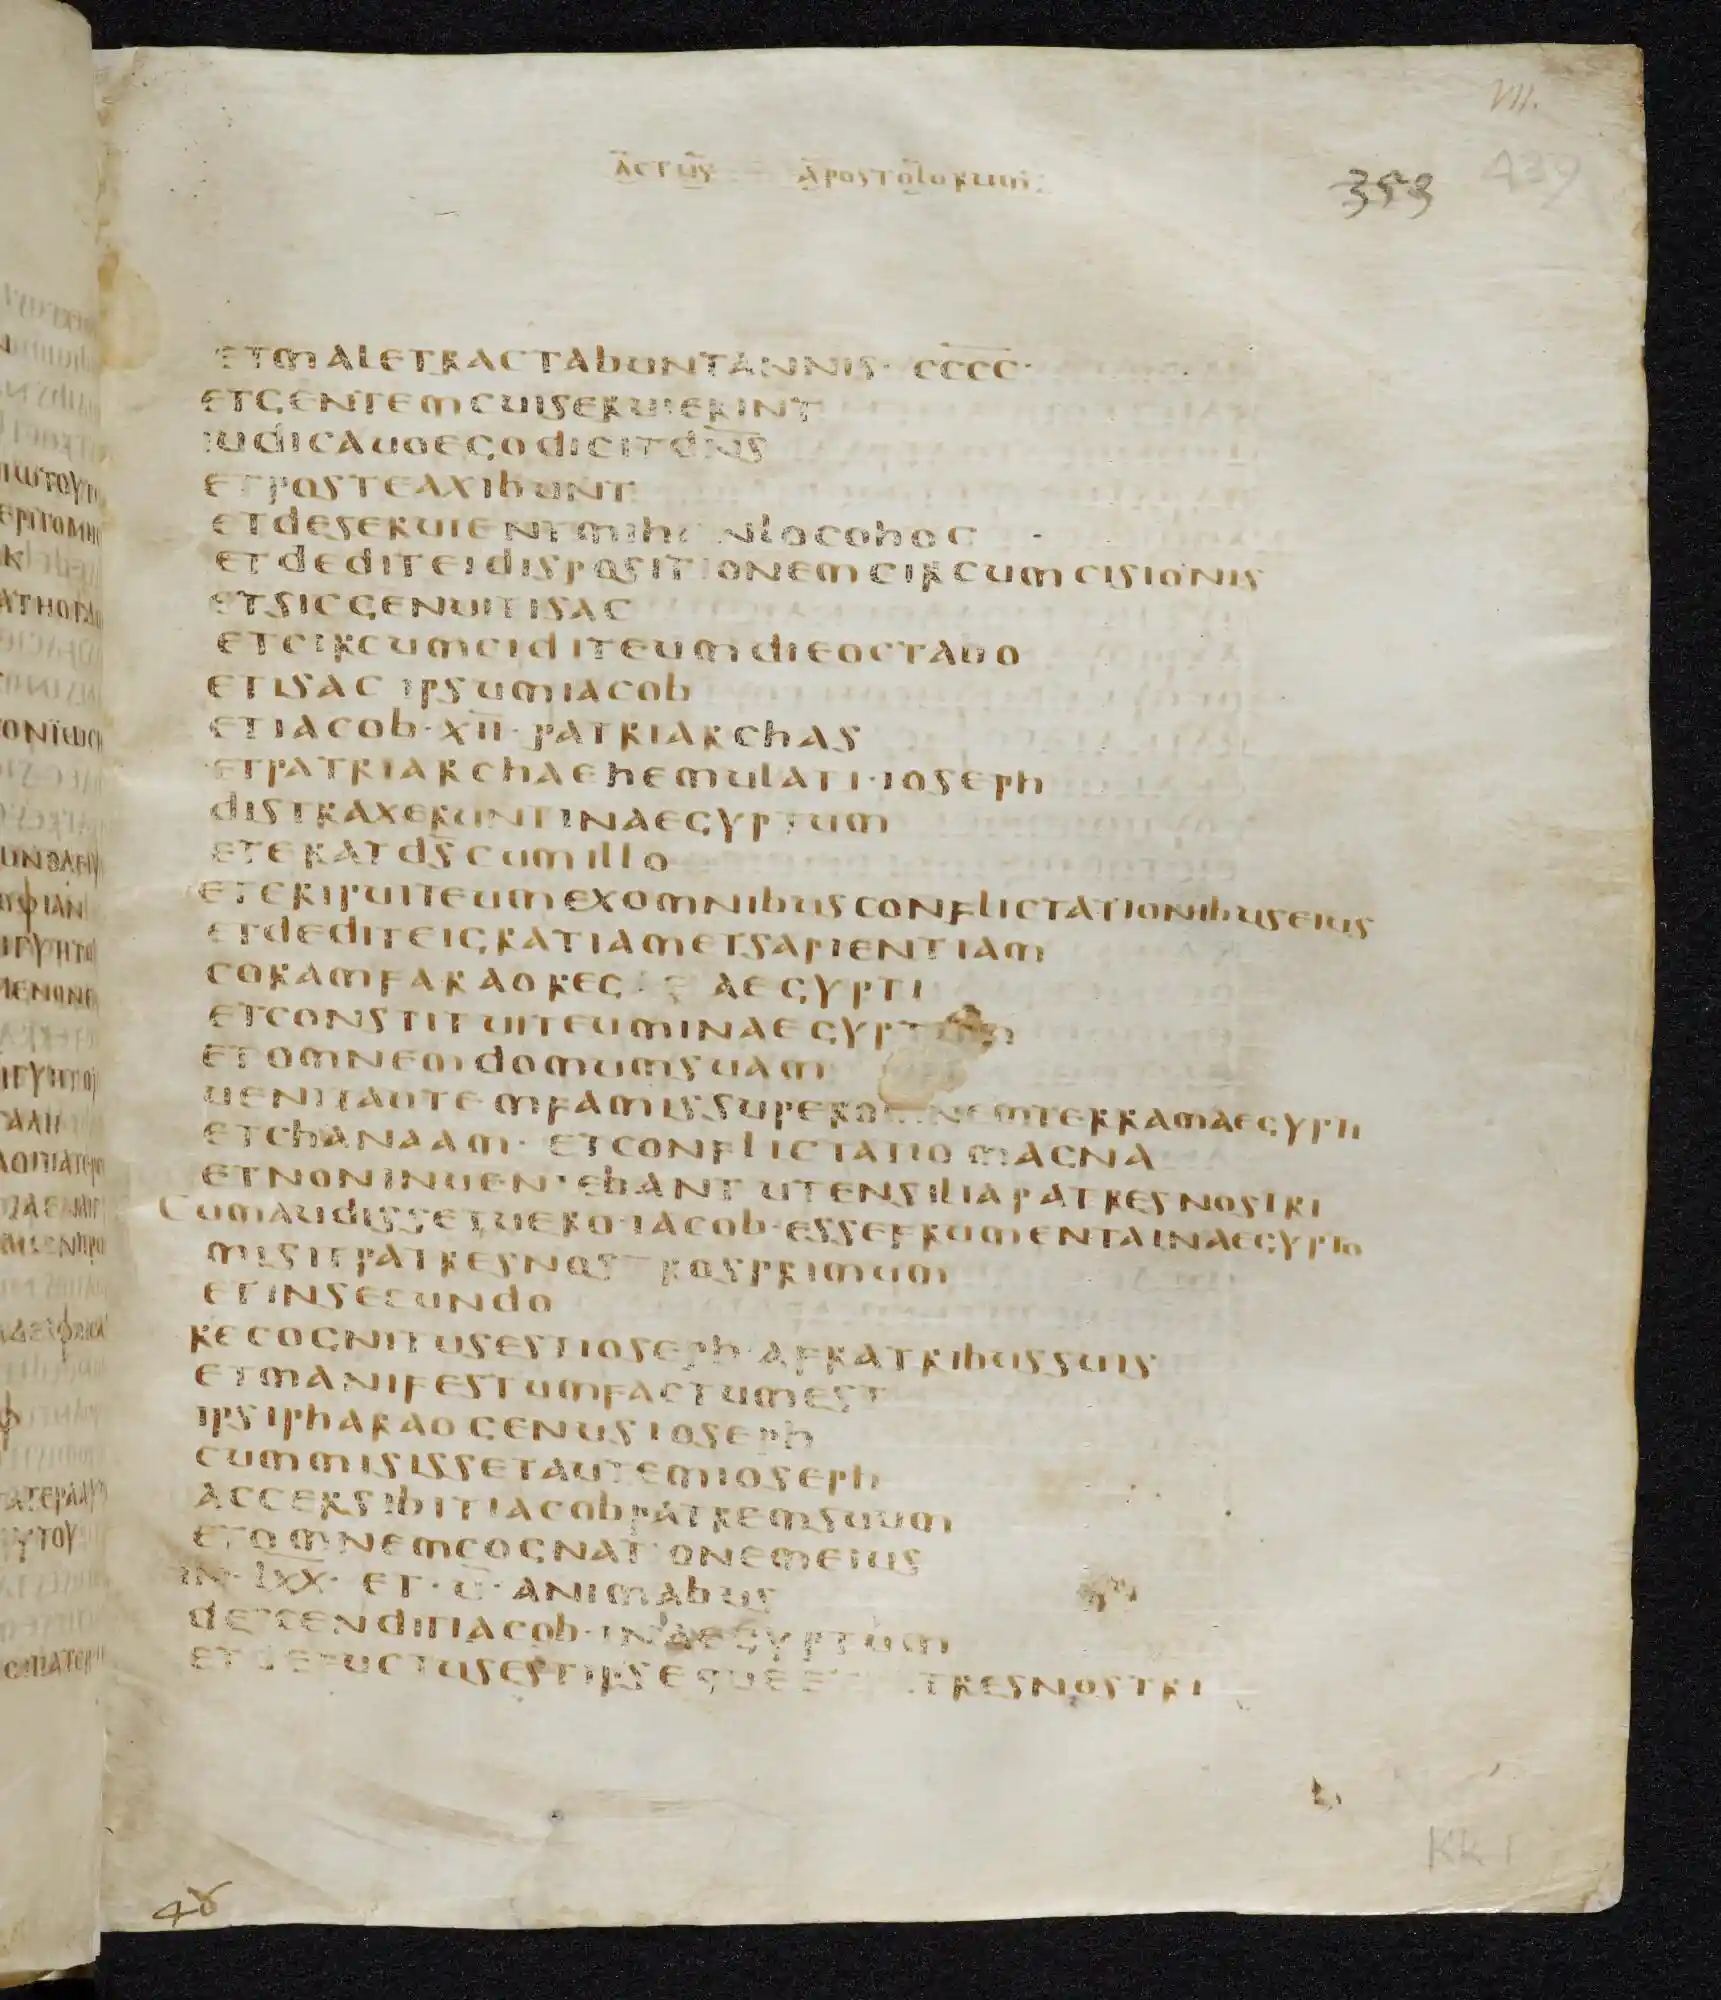 VII.
ACTUS APOSTOLORUM
359 439
ETMALETRACTABUNTANNIS· CCCC·
ETGENTEMCUISERUIERINT
IUDICAUOEGODICITDNS
ETPOSTEAXIBUNT
ETDESERUIENTMIHI INLOCOHOC
ETDEDITEIDISPOSITIONEMCIRCUMCISIONIS
ETSICGENUITISAC
ETCIRCUMCIDITEUMDIEOCTAUO
ETISAC IPSUMIACOB
ETIACOB·XII·PATRIARCHAS
ETPATRIARCHAEHEMULATI·IOSEPH
DISTRAXERUNTINAEGYPTUM
ETERATDSCUMILLO
ETERIPUITEUMEXOMNIBUSCONFLICTATIONIBUSEIUS
ETDEDITEIGRATIAMETSAPIENTIAM
CORAMFARAO AEGYPTI
ETCONSTITUITEUMINAEGYPTUM
ETOMNEMDOMUMSUAM
UENITAUTEMFAMISSUPEROMNEMTERRAMAEGYPTI
ETCHANAAM· ETCONFLICTATIO MAGNA
ETNONINUENIEBANT UTENSILIAPATRESNOSTRI
CUMAUDISSETUERO·IACOB·ESSEFRUMENTAINAEGYPTO
MISITPATRESNOSTROSPRIMUM
ETINSECUNDO
RECOGNITUSESTIOSEPH·AFRATRIBUSSUIS
ETMANIFESTUMFACTUMEST
IPSIPHARAOGENUSIOSEPH
CUMMISISSETAUTEMIOSEPH
ACCERSIBITIACOBPATREMSUUM
ETOMNEMCOGNATIONEMEIUS
IN·LXX· ET·U·ANIMABUS
DESCENDITIACOB·INAEGYPTUM
ETDEFUCTUSESTIPSEQUEETPATRESNOSTRI
KK 1